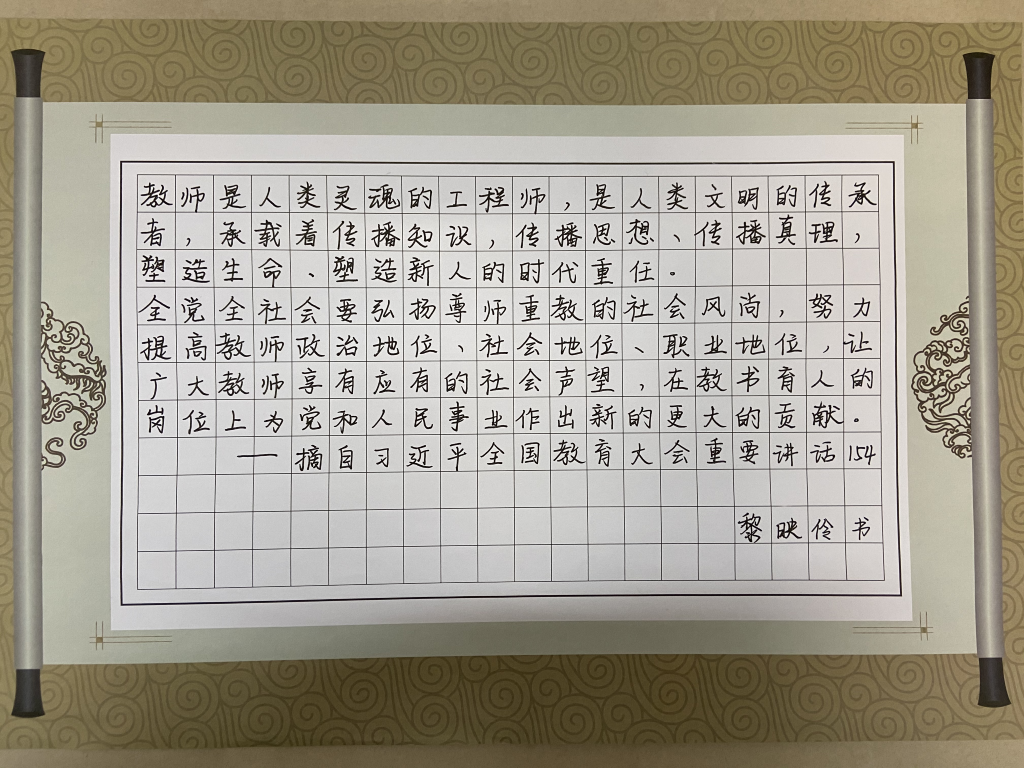 教师是人类灵魂的工程师，是人类文明的传承
者，承载着传播知识，传播思想、传播真理，
塑造生命、塑造新人的时代重任。
全党全社会要弘扬尊师重教的社会风尚，努力
提高教师政治地位、社会地位、职业地位，让
广大教师享有应有的社会声望，在教书育人的
岗位上为党和人民事业作出新的更大的贡献。
——摘自习近平全国教育大会重要讲话154
黎映伶书